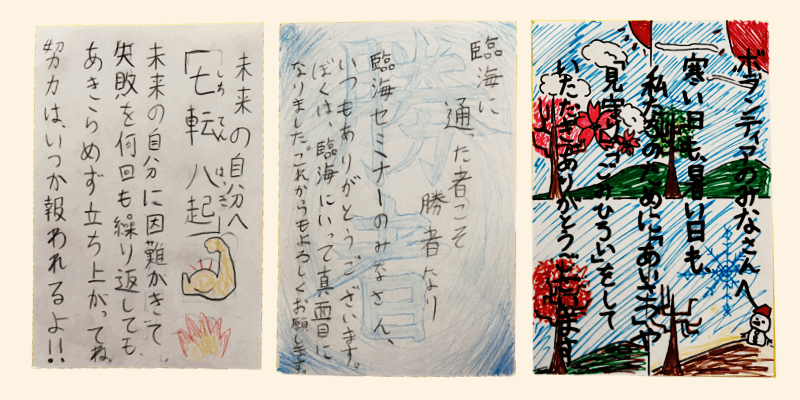 未来の自分へ
「七転八起」
未来の自分に困難がきて、
失敗を何回も繰り返しても、
あきらめず立ち上がってね
努力は、いつか報われるよ!!
臨海に
通った者こそ
勝者なり
臨海セミナーのみなさん、
いつもありがとうございます。
ぼくは、臨海にいって真面目に
なりました。これからもよろしくお願いします。
勝者
ボランティアのみなさんへ
寒い日も、暑い日も、
私たちのために「あいさつ」や
見守り、「ごみひろい」をして
いただきありがとうございます